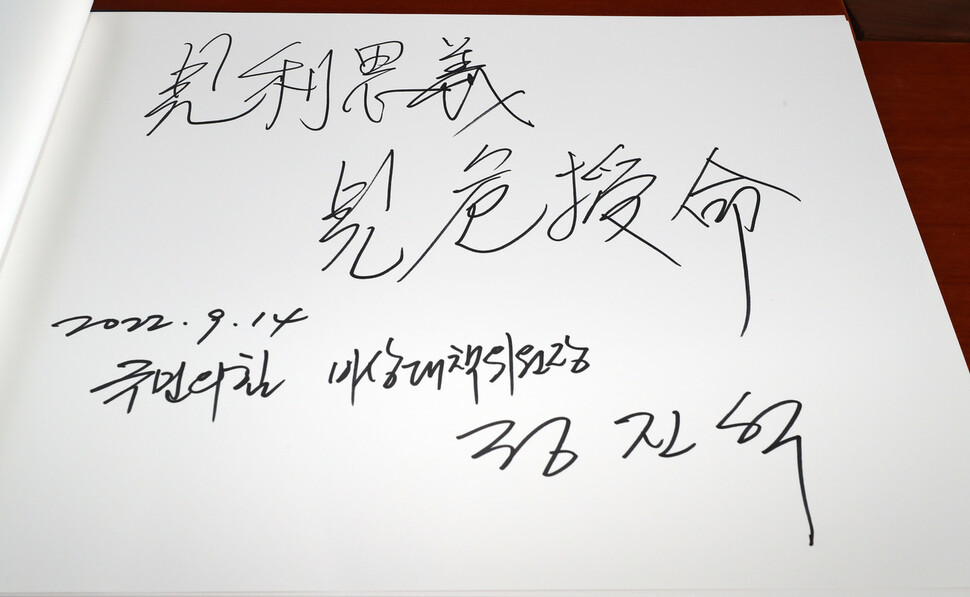 見利思義
見危授命
2022.9.14
국민의힘 비상대책위원장
정진석